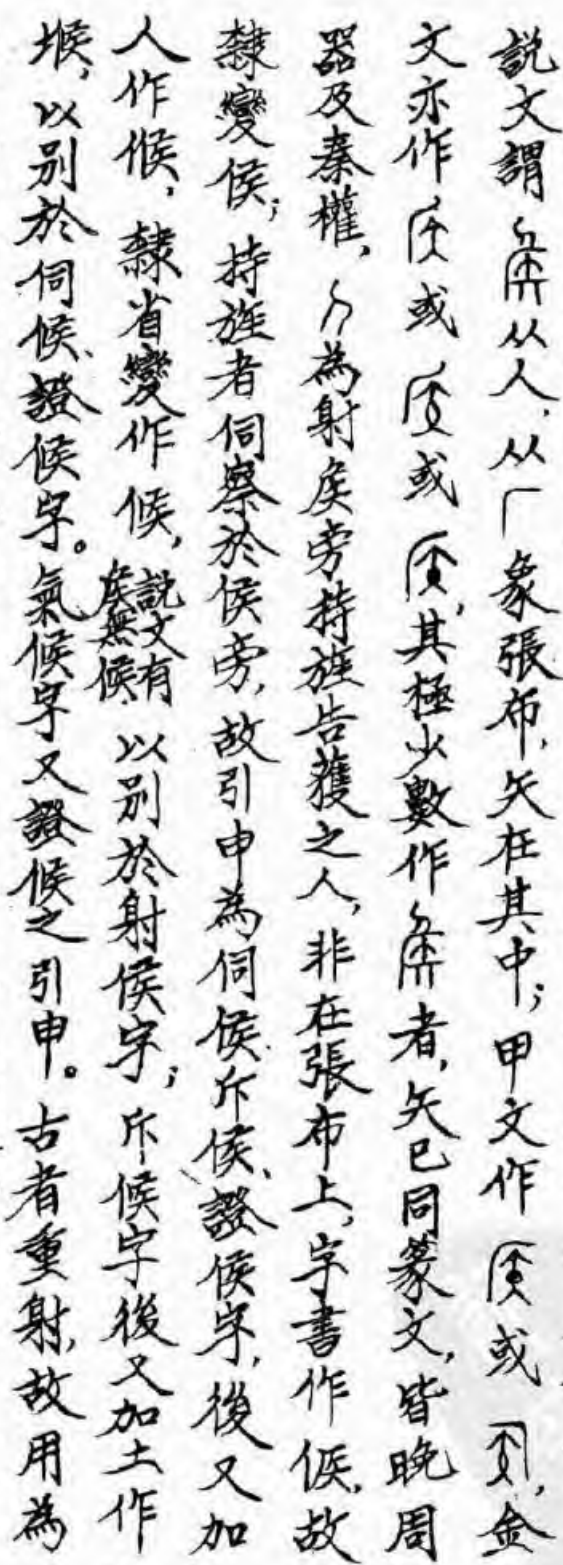 説文謂从人,从厂象張布,矢在其中;甲文作或,金
文亦作或或,其極少數作者,矢已同篆文,皆晚周
器及秦權,為射矦旁持旌告獲之人,非在張布上,字書作矦,故
隸變侯;持旌者伺察於侯旁,故引申為伺侯、斥侯、證侯字,後又加
人作㑨,隸省變作候,説文有矦無候以別於射侯字;斥候字後又加土作
堠,以別於伺候、證候字。氣候字又證候之引申。古者重射,故用為